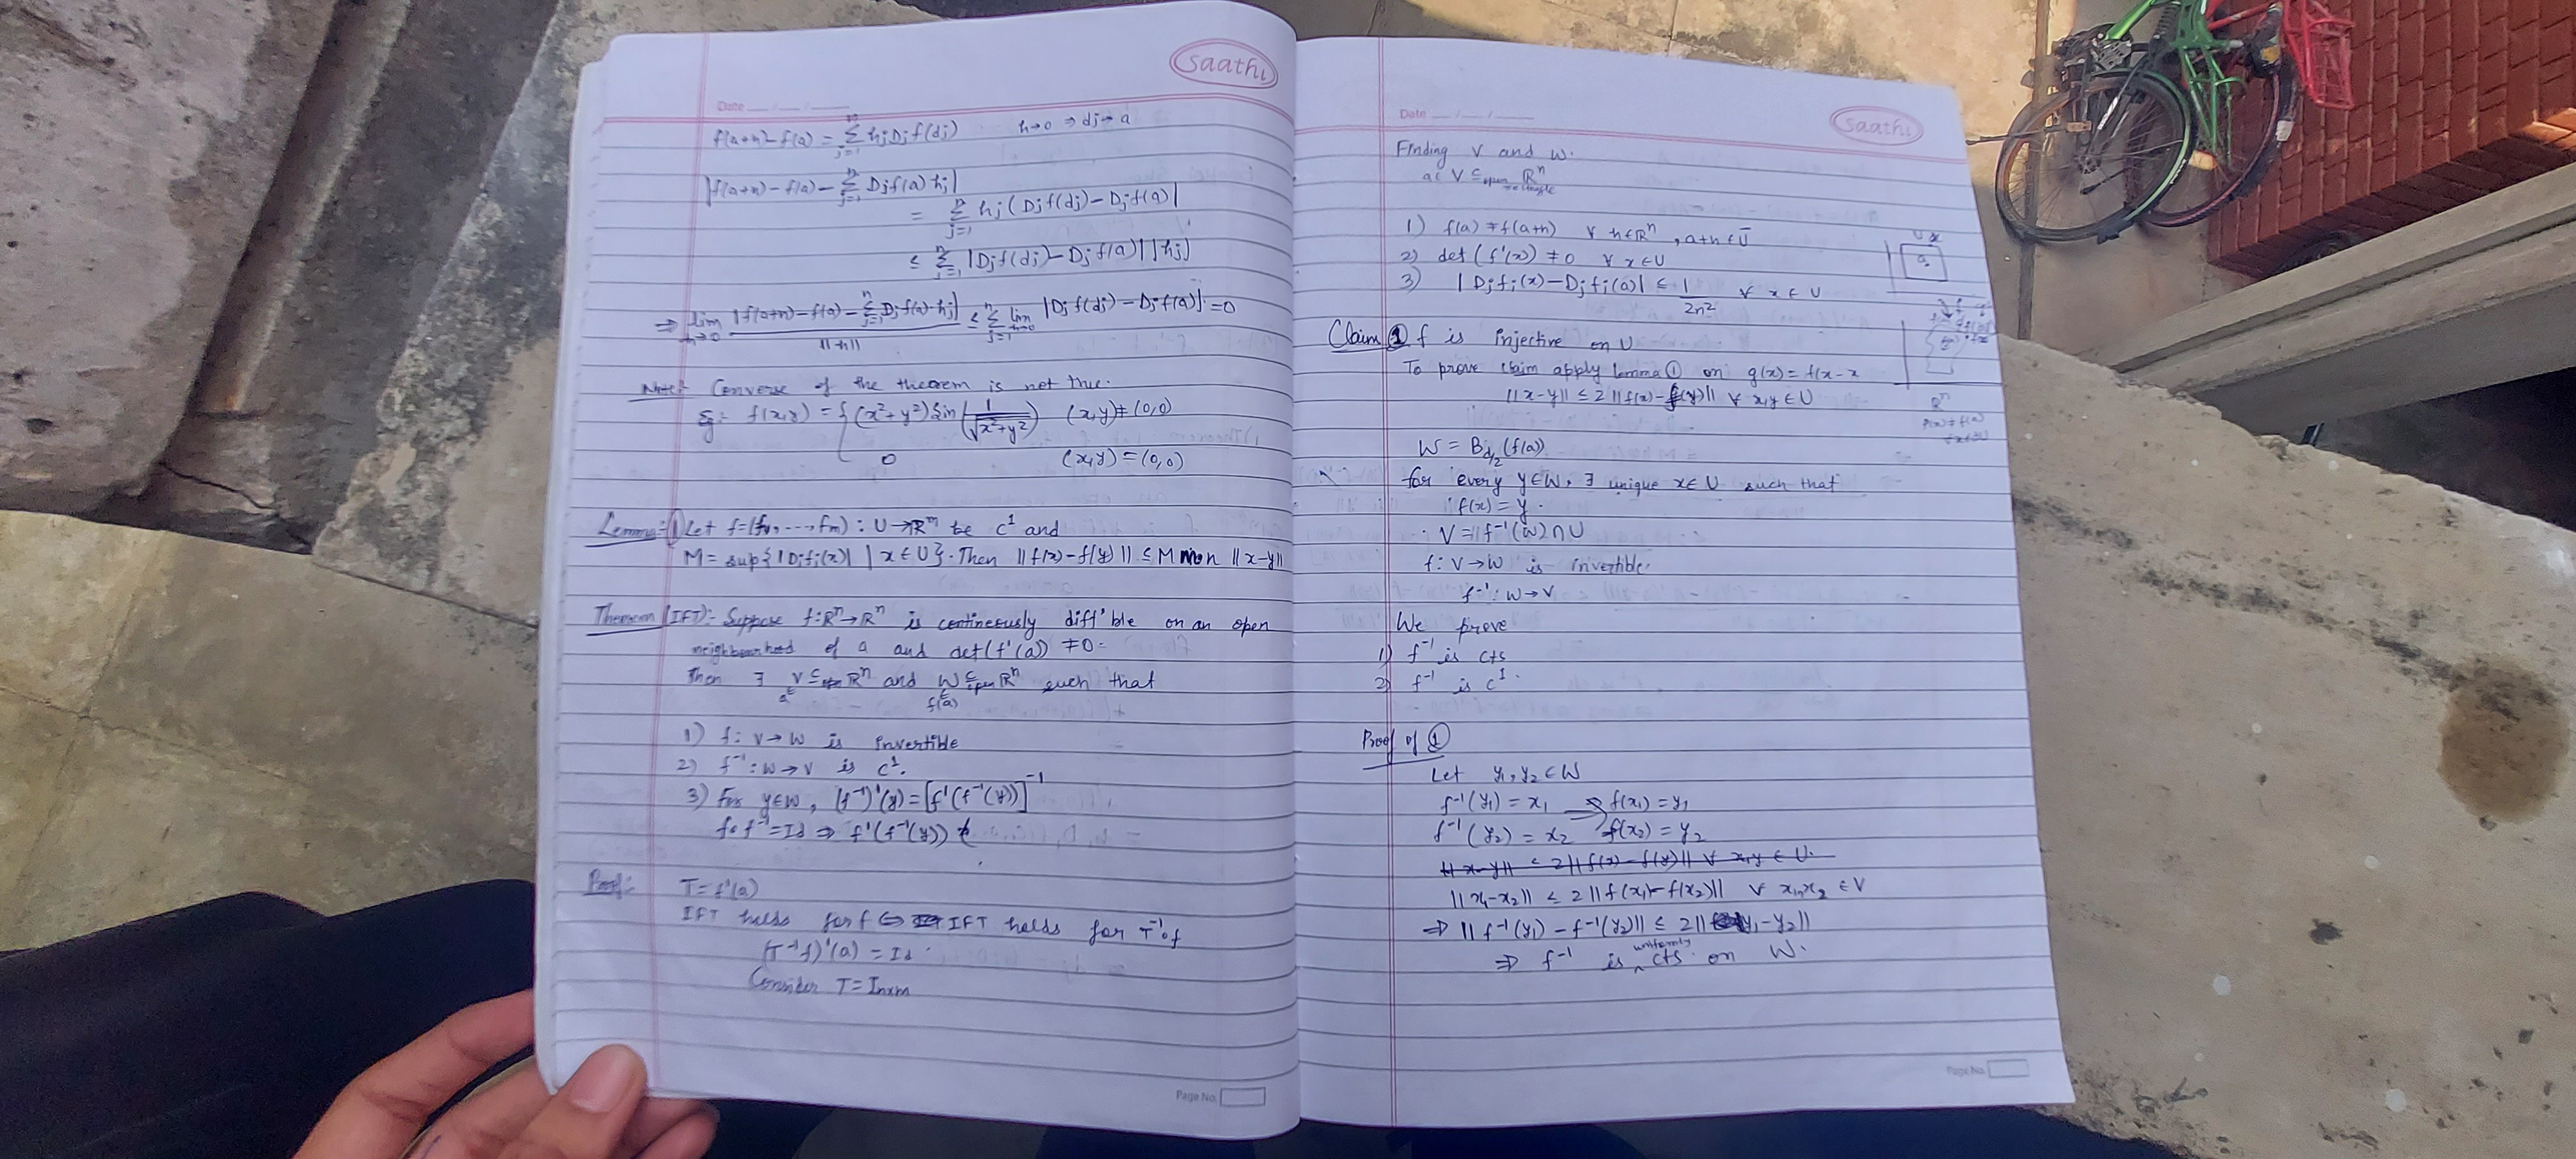 Date
saathi
f(a+h) - f(a) = Σ_{j=1}^{n} h_j D_j f(d_j)    h→0 ⇒ d_j → a
|f(a+h) - f(a) - Σ_{j=1}^{n} D_j f(a) h_j|
= Σ_{j=1}^{n} h_j (D_j f(d_j) - D_j f(a)|
≤ Σ_{j=1}^{n} |D_j f(d_j) - D_j f(a)| |h_j|
⇒ lim_{h→0} |f(a+h) - f(a) - Σ_{j=1}^{n} D_j f(a) h_j| / ||h|| ≤ Σ_{j=1}^{n} lim_{h→0} |D_j f(d_j) - D_j f(a)| = 0
Note: Converse of the theorem is not true.
Eg: f(x,y) = { (x²+y²) sin(1/√(x²+y²))   (x,y) ≠ (0,0)
0   (x,y) = (0,0)
Lemma-① Let f=(f₁,...,fm) : U→R^m be c¹ and
M = sup{|D_i f_j(x)| | x∈U}. Then ||f(x) - f(y)|| ≤ M m n ||x-y||
Theorem (IFT): Suppose f: R^n → R^n is continuously diff'ble on an open
neighbourhood of a and det(f'(a)) ≠ 0.
Then ∃ V ⊆open R^n and W ⊆open R^n such that
a∈    f(a)∈
1) f: V→W is invertible
2) f⁻¹: W→V is c¹.
3) For y∈W, (f⁻¹)'(y) = [f'(f⁻¹(y))]⁻¹
f∘f⁻¹ = Id ⇒ f'(f⁻¹(y))
Proof: T = f'(a)
IFT holds for f ⇔ IFT holds for T⁻¹∘f
(T⁻¹f)'(a) = Id.
Consider T = I_{n×n}
Page No.
Date
saathi
Finding V and W.
a∈ V ⊆open R^n
rectangle
1) f(a) ≠ f(a+h) ∀ h∈R^n, a+h∈Ū
2) det(f'(x)) ≠ 0 ∀ x∈U
3) |D_j f_i(x) - D_j f_i(a)| ≤ 1/2n² ∀ x∈U
Claim ① f is injective on U
To prove claim apply lemma ① on g(x) = f(x - x
||x-y|| ≤ 2||f(x) - f(y)|| ∀ x,y∈U
W = B_{d/2}(f(a))
for every y∈W, ∃ unique x∈U such that
f(x) = y.
V = f⁻¹(W)∩U
f: V→W is invertible.
f⁻¹: W→V
We prove
1) f⁻¹ is cts
2) f⁻¹ is c¹.
Proof of ①
Let y₁, y₂∈W
f⁻¹(y₁) = x₁ ⇒ f(x₁) = y₁
f⁻¹(y₂) = x₂    f(x₂) = y₂
||x-y|| ≤ 2||f(x) - f(y)|| ∀ x,y∈U.
||x₁-x₂|| ≤ 2||f(x₁) - f(x₂)|| ∀ x₁,x₂∈V
⇒ ||f⁻¹(y₁) - f⁻¹(y₂)|| ≤ 2||y₁-y₂||
⇒ f⁻¹ is uniformly cts on W.
Page No.